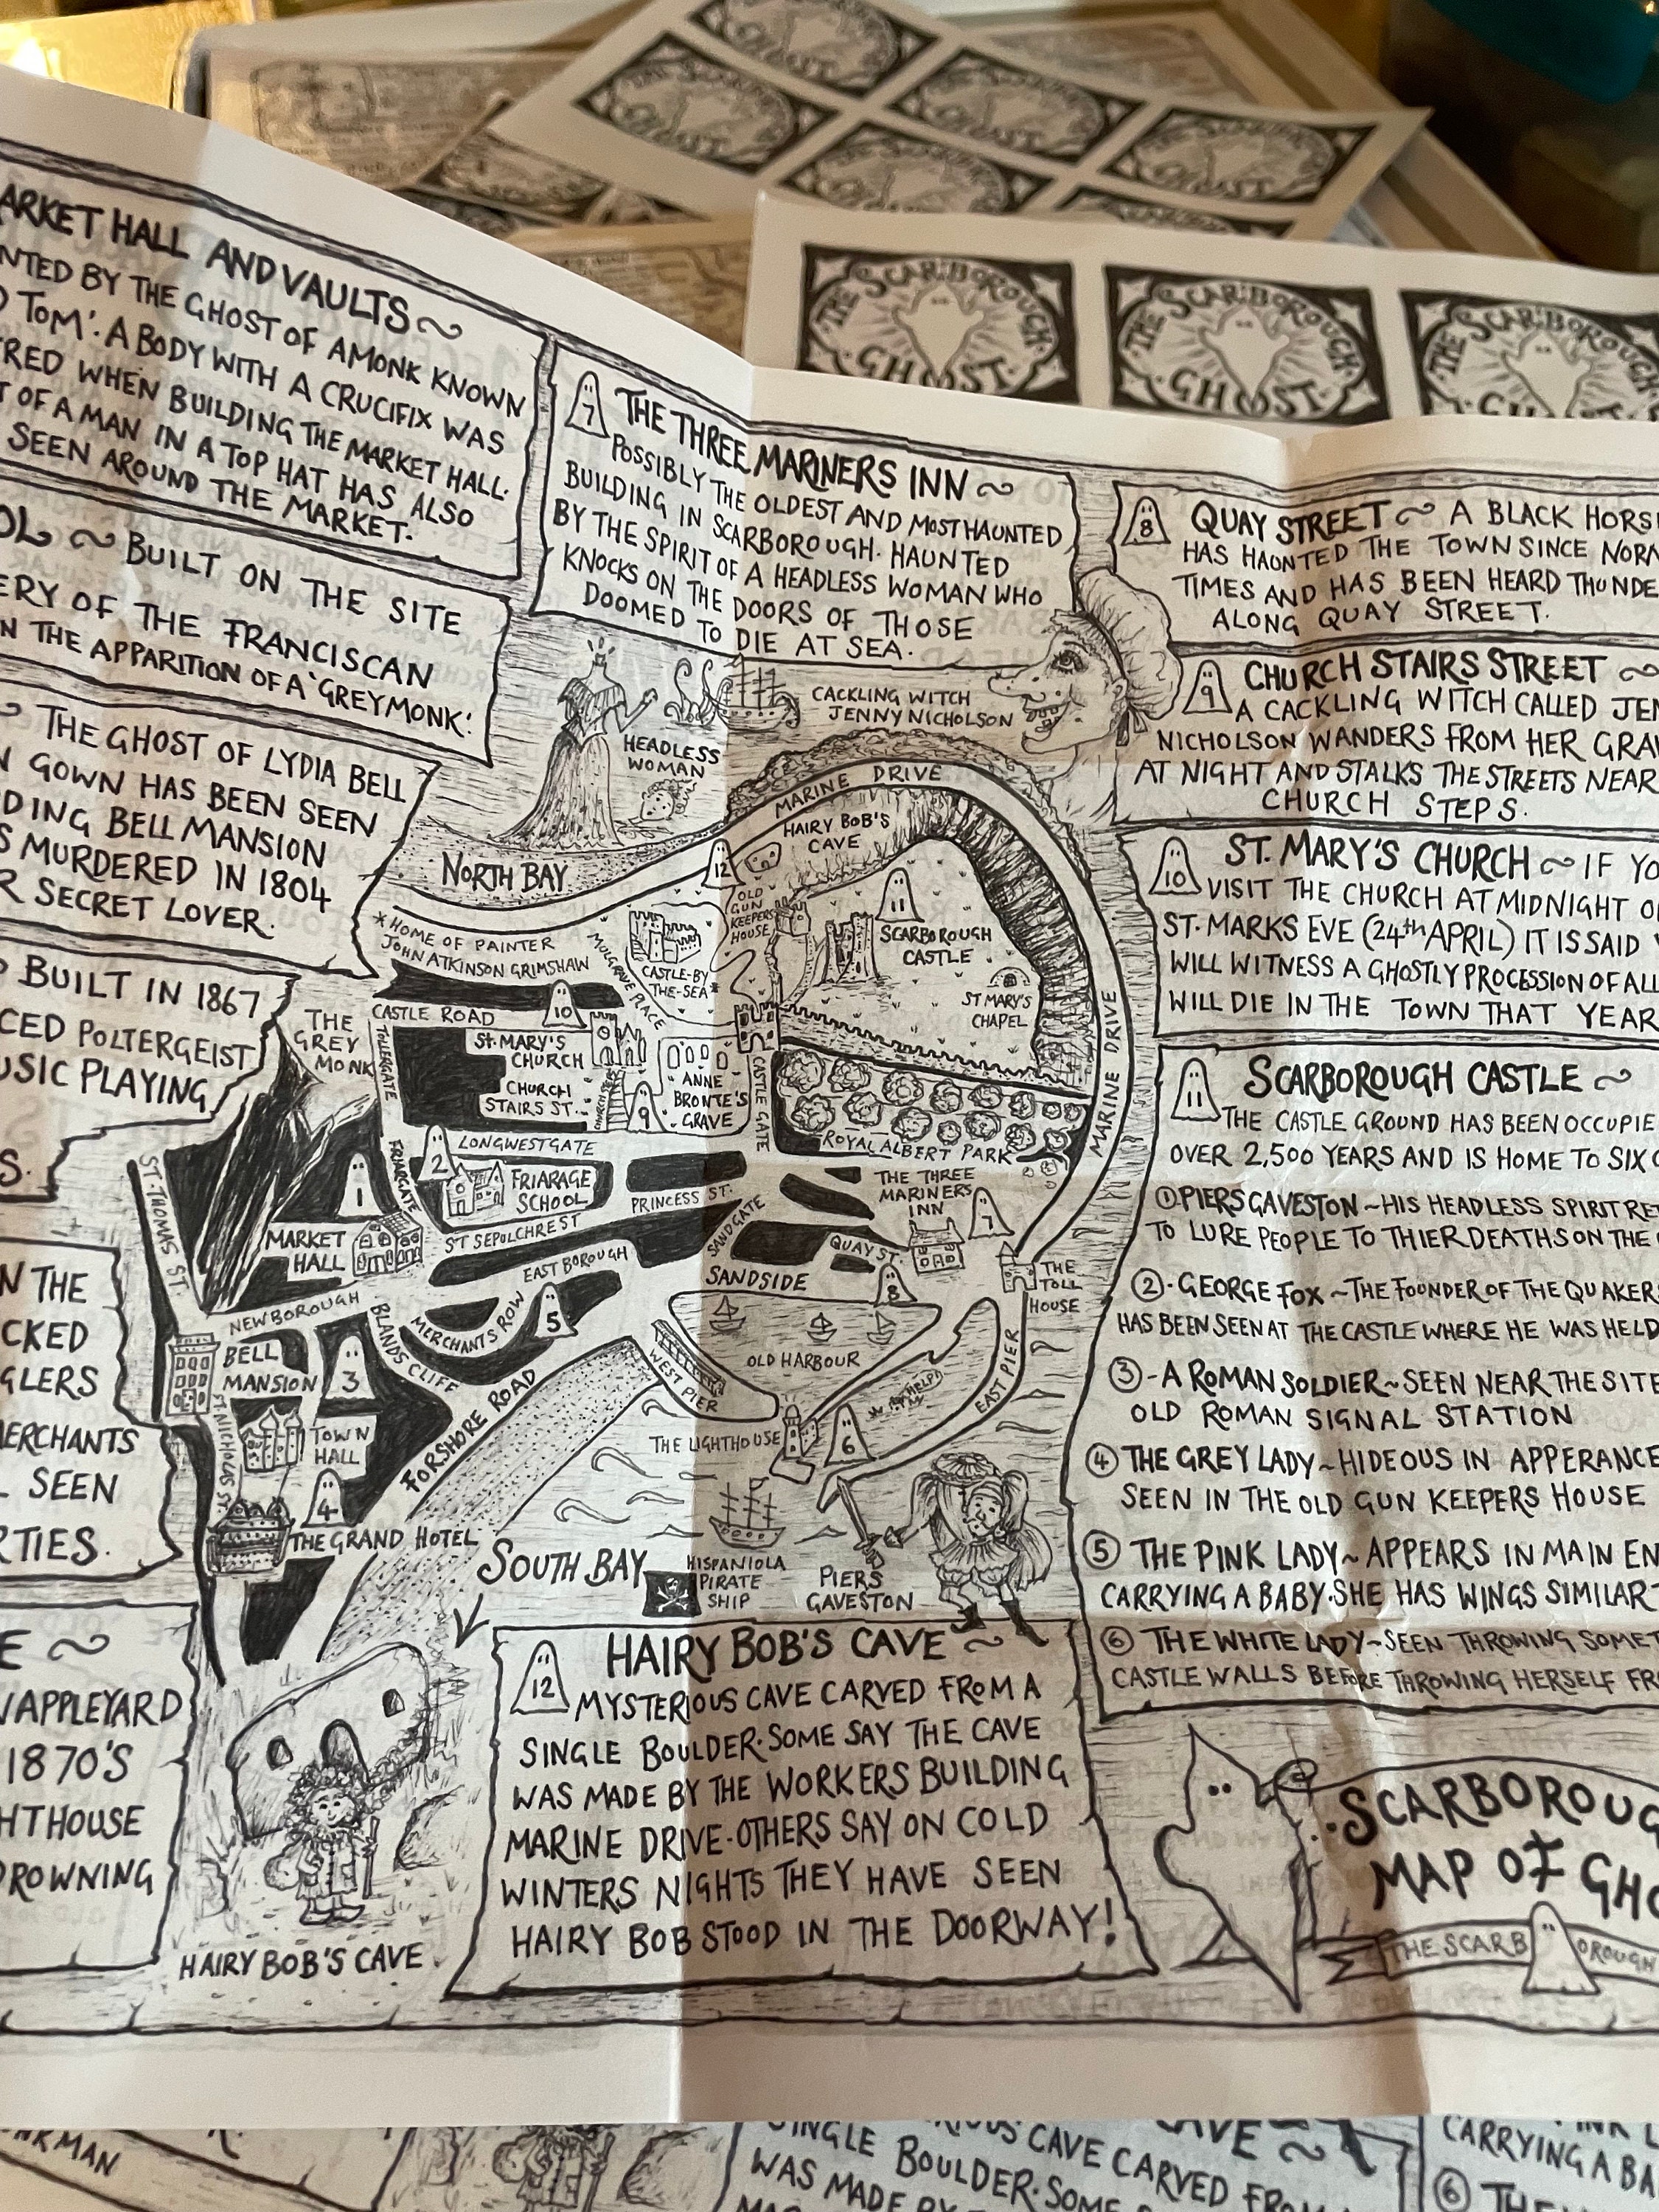 THE SCARBOROUGH
GHOST
THE SCARBOROUGH
GHOST
THE SCARBOROUGH
MARKET HALL AND VAULTS
BY THE GHOST OF A MONK KNOWN
TOM'. A BODY WITH A CRUCIFIX WAS
WHEN BUILDING THE MARKET HALL.
OF A MAN IN A TOP HAT HAS ALSO
SEEN AROUND THE MARKET.
~ BUILT ON THE SITE
OF THE FRANCISCAN
THE APPARITION OF A 'GREY MONK'.
THE GHOST OF LYDIA BELL
GOWN HAS BEEN SEEN
BELL MANSION
MURDERED IN 1804
SECRET LOVER.
BUILT IN 1867
POLTERGEIST
PLAYING
THE
MERCHANTS
SEEN
APPLEYARD
1870'S
7 THE THREE MARINERS INN ~
POSSIBLY THE OLDEST AND MOST HAUNTED
BUILDING IN SCARBOROUGH. HAUNTED
BY THE SPIRIT OF A HEADLESS WOMAN WHO
KNOCKS ON THE DOORS OF THOSE
DOOMED TO DIE AT SEA.
8 QUAY STREET ~ A BLACK
HAS HAUNTED THE TOWN SINCE
TIMES AND HAS BEEN HEARD
ALONG QUAY STREET.
9 CHURCH STAIRS STREET ~
A CACKLING WITCH CALLED
NICHOLSON WANDERS FROM HER
AT NIGHT AND STALKS THE STREETS NEAR
CHURCH STEPS.
10 ST. MARY'S CHURCH ~ IF
VISIT THE CHURCH AT MIDNIGHT
ST. MARKS EVE (24th APRIL) IT IS SAID
WILL WITNESS A GHOSTLY PROCESSION OF ALL
WILL DIE IN THE TOWN THAT YEAR
11 SCARBOROUGH CASTLE ~
THE CASTLE GROUND HAS BEEN
OVER 2,500 YEARS AND IS HOME TO SIX
1 PIERS GAVESTON ~ HIS HEADLESS SPIRIT
TO LURE PEOPLE TO THIER DEATHS ON THE
2 · GEORGE FOX ~ THE FOUNDER OF THE
HAS BEEN SEEN AT THE CASTLE WHERE HE WAS HELD
3 - A ROMAN SOLDIER ~ SEEN NEAR THE SITE
OLD ROMAN SIGNAL STATION
4 THE GREY LADY ~ HIDEOUS IN APPERANCE
SEEN IN THE OLD GUN KEEPERS HOUSE
5 THE PINK LADY ~ APPEARS IN MAIN
CARRYING A BABY. SHE HAS WINGS
6 THE WHITE LADY ~ SEEN THROWING
CASTLE WALLS BEFORE THROWING HERSELF
HEADLESS
WOMAN
CACKLING WITCH
JENNY NICHOLSON
MARINE DRIVE
HAIRY BOB'S
CAVE
12
NORTH BAY
OLD
GUN
KEEPERS
HOUSE
11
SCARBOROUGH
CASTLE
ST MARY'S
CHAPEL
MARINE DRIVE
MARINE DRIVE
*HOME OF PAINTER
JOHN ATKINSON GRIMSHAW
MULGRAVE PLACE
CASTLE-BY
THE-SEA*
CASTLE ROAD
10
ST. MARY'S
CHURCH
CHURCH
STAIRS ST.
9
ANNE
BRONTE'S
GRAVE
CASTLE GATE
ROYAL ALBERT PARK
THE
GREY
MONK
TOLLERGATE
FRIARGATE
LONGWESTGATE
2
FRIARAGE
SCHOOL
ST SEPULCHREST
PRINCESS ST.
SANDGATE
THE THREE
MARINERS
INN
7
QUAY ST.
8
THE
TOLL
HOUSE
ST. THOMAS ST
1
MARKET
HALL
EASTBOROUGH
NEWBOROUGH
MERCHANTS ROW
5
BLANDS CLIFF
SANDSIDE
OLD HARBOUR
WEST PIER
EAST PIER
HELP!
BELL
MANSION
3
ST NICHOLAS ST
TOWN
HALL
4
THE GRAND HOTEL
FORSHORE ROAD
THE LIGHTHOUSE
6
SOUTH BAY
HISPANIOLA
PIRATE
SHIP
PIERS
GAVESTON
12 HAIRY BOB'S CAVE ~
MYSTERIOUS CAVE CARVED FROM A
SINGLE BOULDER. SOME SAY THE CAVE
WAS MADE BY THE WORKERS BUILDING
MARINE DRIVE - OTHERS SAY ON COLD
WINTERS NIGHTS THEY HAVE SEEN
HAIRY BOB STOOD IN THE DOORWAY!
HAIRY BOB'S CAVE
MAP OF
CAVE CARVED
WAS MADE
CARRYING A
6